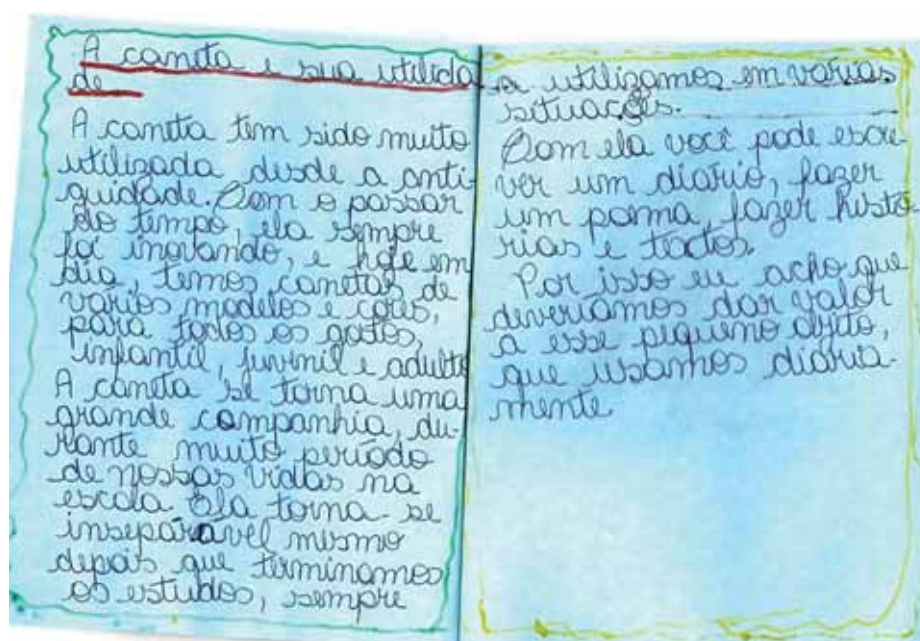 A caneta e sua utilida
de
A caneta tem sido muito
utilizada desde a anti-
guidade. Com o passar
do tempo, ela sempre
foi inovando, e hoje em
dia, temos canetas de
vários modelos e cores,
para todos os gostos,
infantil, juvenil e adulto
A caneta se torna uma
grande companhia, du-
rante muito período
de nossas vidas na
escola Ela torna-se
inseparável mesmo
depois que terminamos
os estudos, sempre
a utilizamos em várias
situações.
Com ela você pode escre-
ver um diário, fazer
um poema, fazer histó
rias e textos.
Por isso eu acho que
deveríamos dar valor
a esse pequeno objeto,
que usamos diaria-
mente.